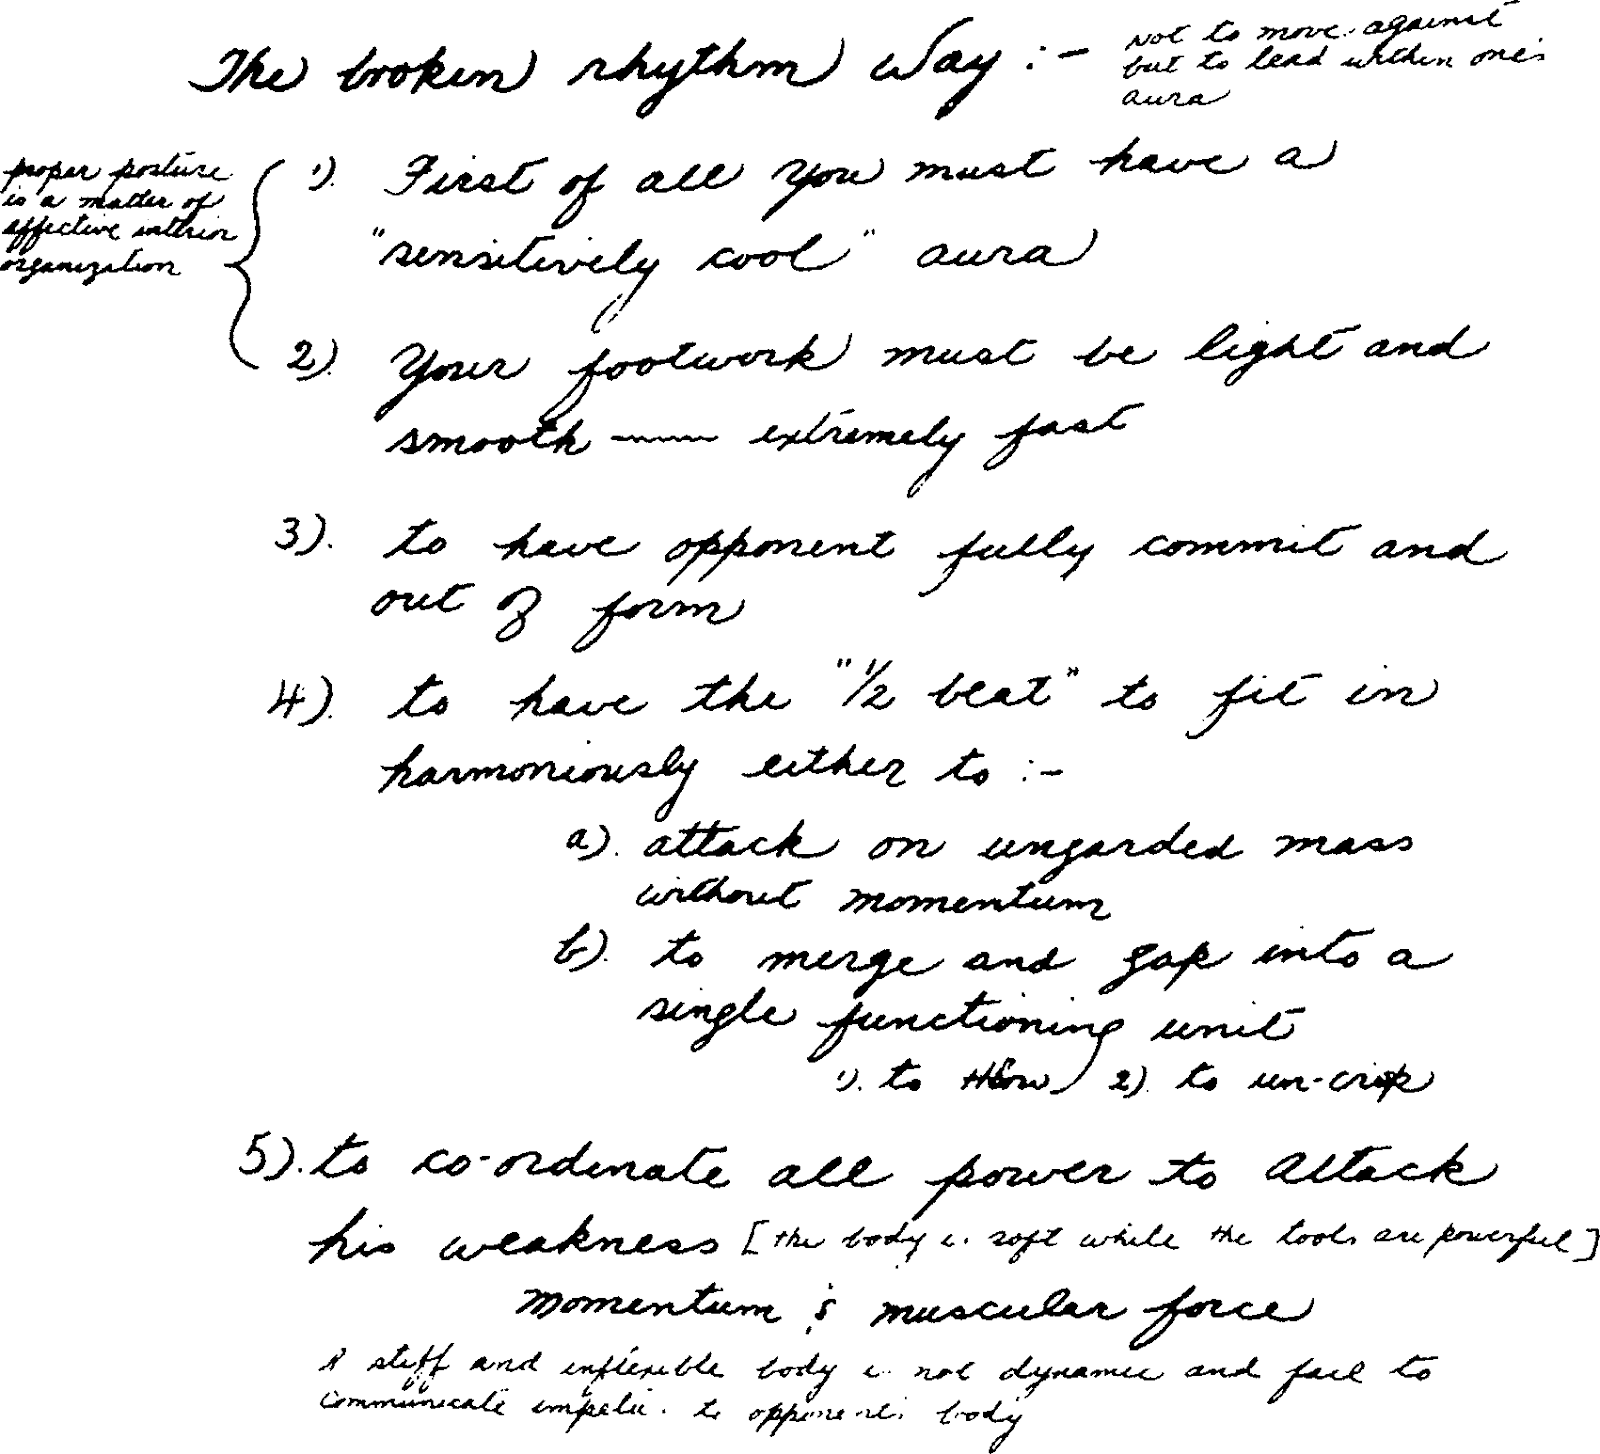 The broken rhythm Way :-
not to move against
but to lead within one's
aura
proper posture
is a matter of
effective interior
organization
1). First of all you must have a
"sensitively cool" aura
2). Your footwork must be light and
smooth —— extremely fast
3). to have opponent fully commit and
out of form
4). to have the "1/2 beat" to fit in
harmoniously either to :-
a). attack on ungarded mass
without momentum
b). to merge and gap into a
single functioning unit
1). to 2). to un-crisp
5). to co-ordinate all power to Attack
his weakness [the body is soft while the tools are powerful]
Momentum & muscular force
A stiff and inflexible body is not dynamic and fail to
communicate impetus to opponent's body